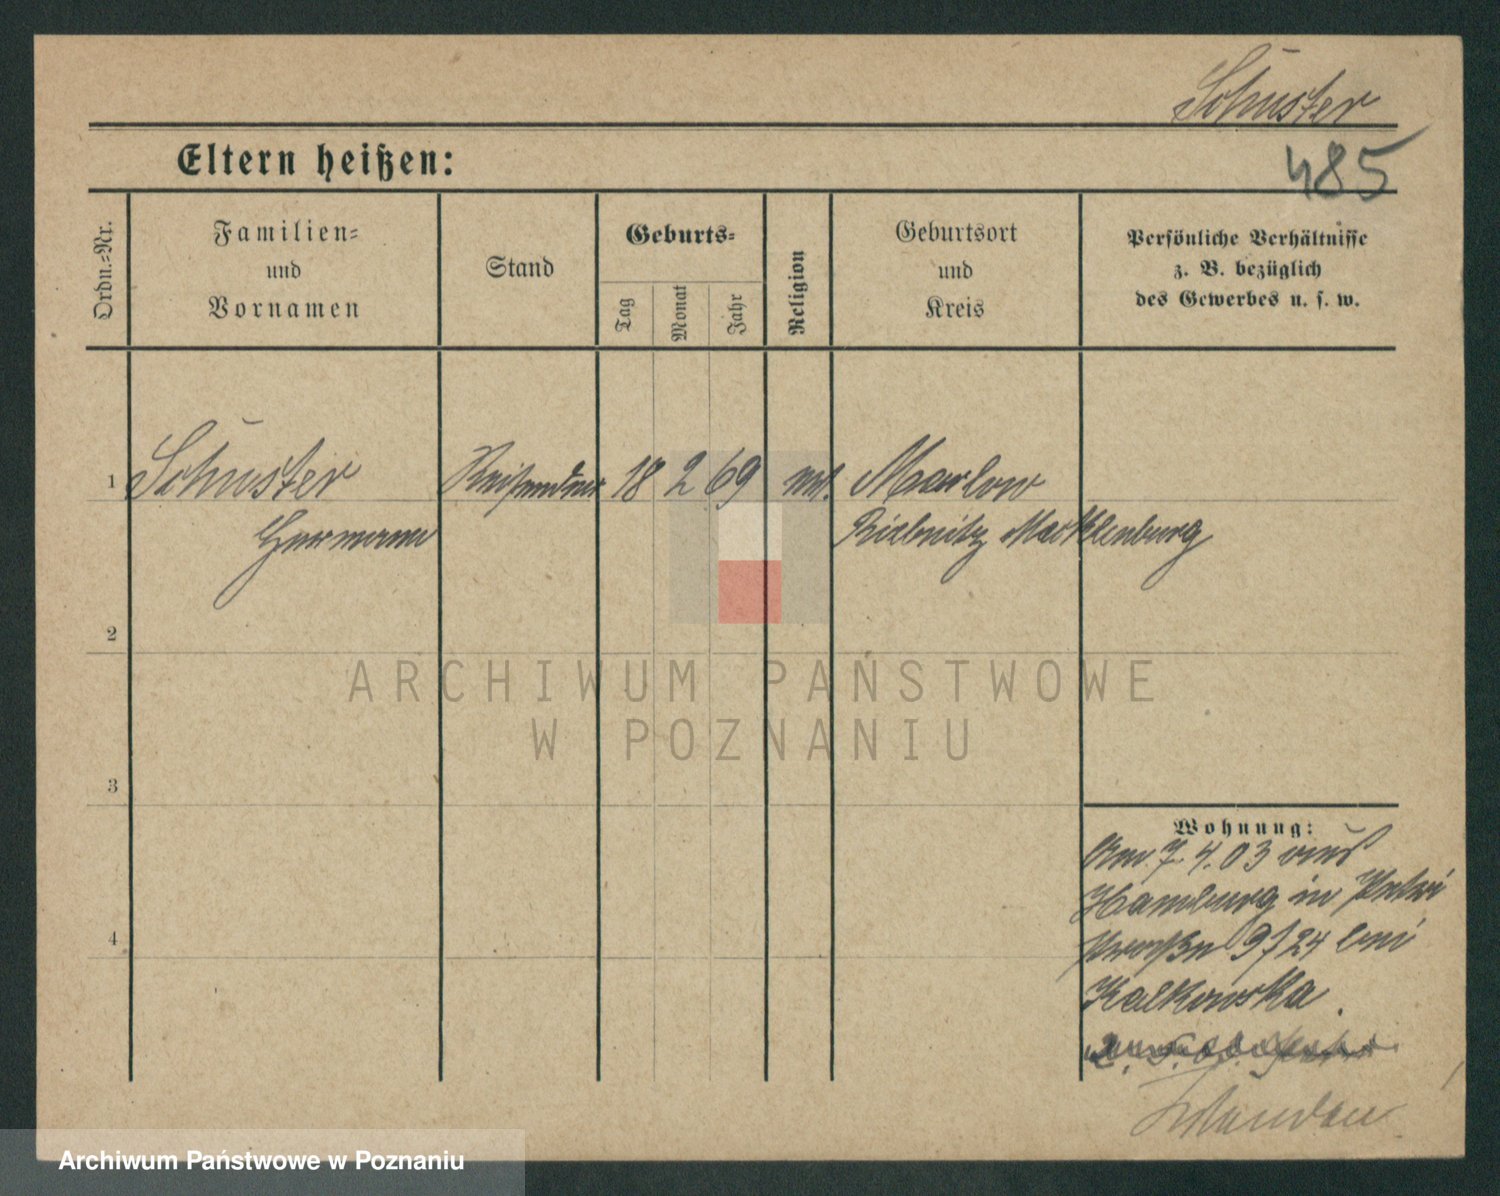 Schuster
485
Eltern heißen:
Ordn.-Nr.
Familien-
und
Vornamen
Stand
Geburts-
Tag
Monat
Jahr
Religion
Geburtsort
und
Kreis
Persönliche Verhältnisse
z. B. bezüglich
des Gewerbes u. s. w.
1 Schuster Reisender 18 2 69 ev. Marlow
Hermann Ribnitz Mecklenburg
2
ARCHIWUM PAŃSTWOWE
W POZNANIU
3
Wohnung:
Am 7.4.03 aus
Hamburg in Petri
straße 9/24 bei
4
Kalkowska.
Archiwum Państwowe w Poznaniu